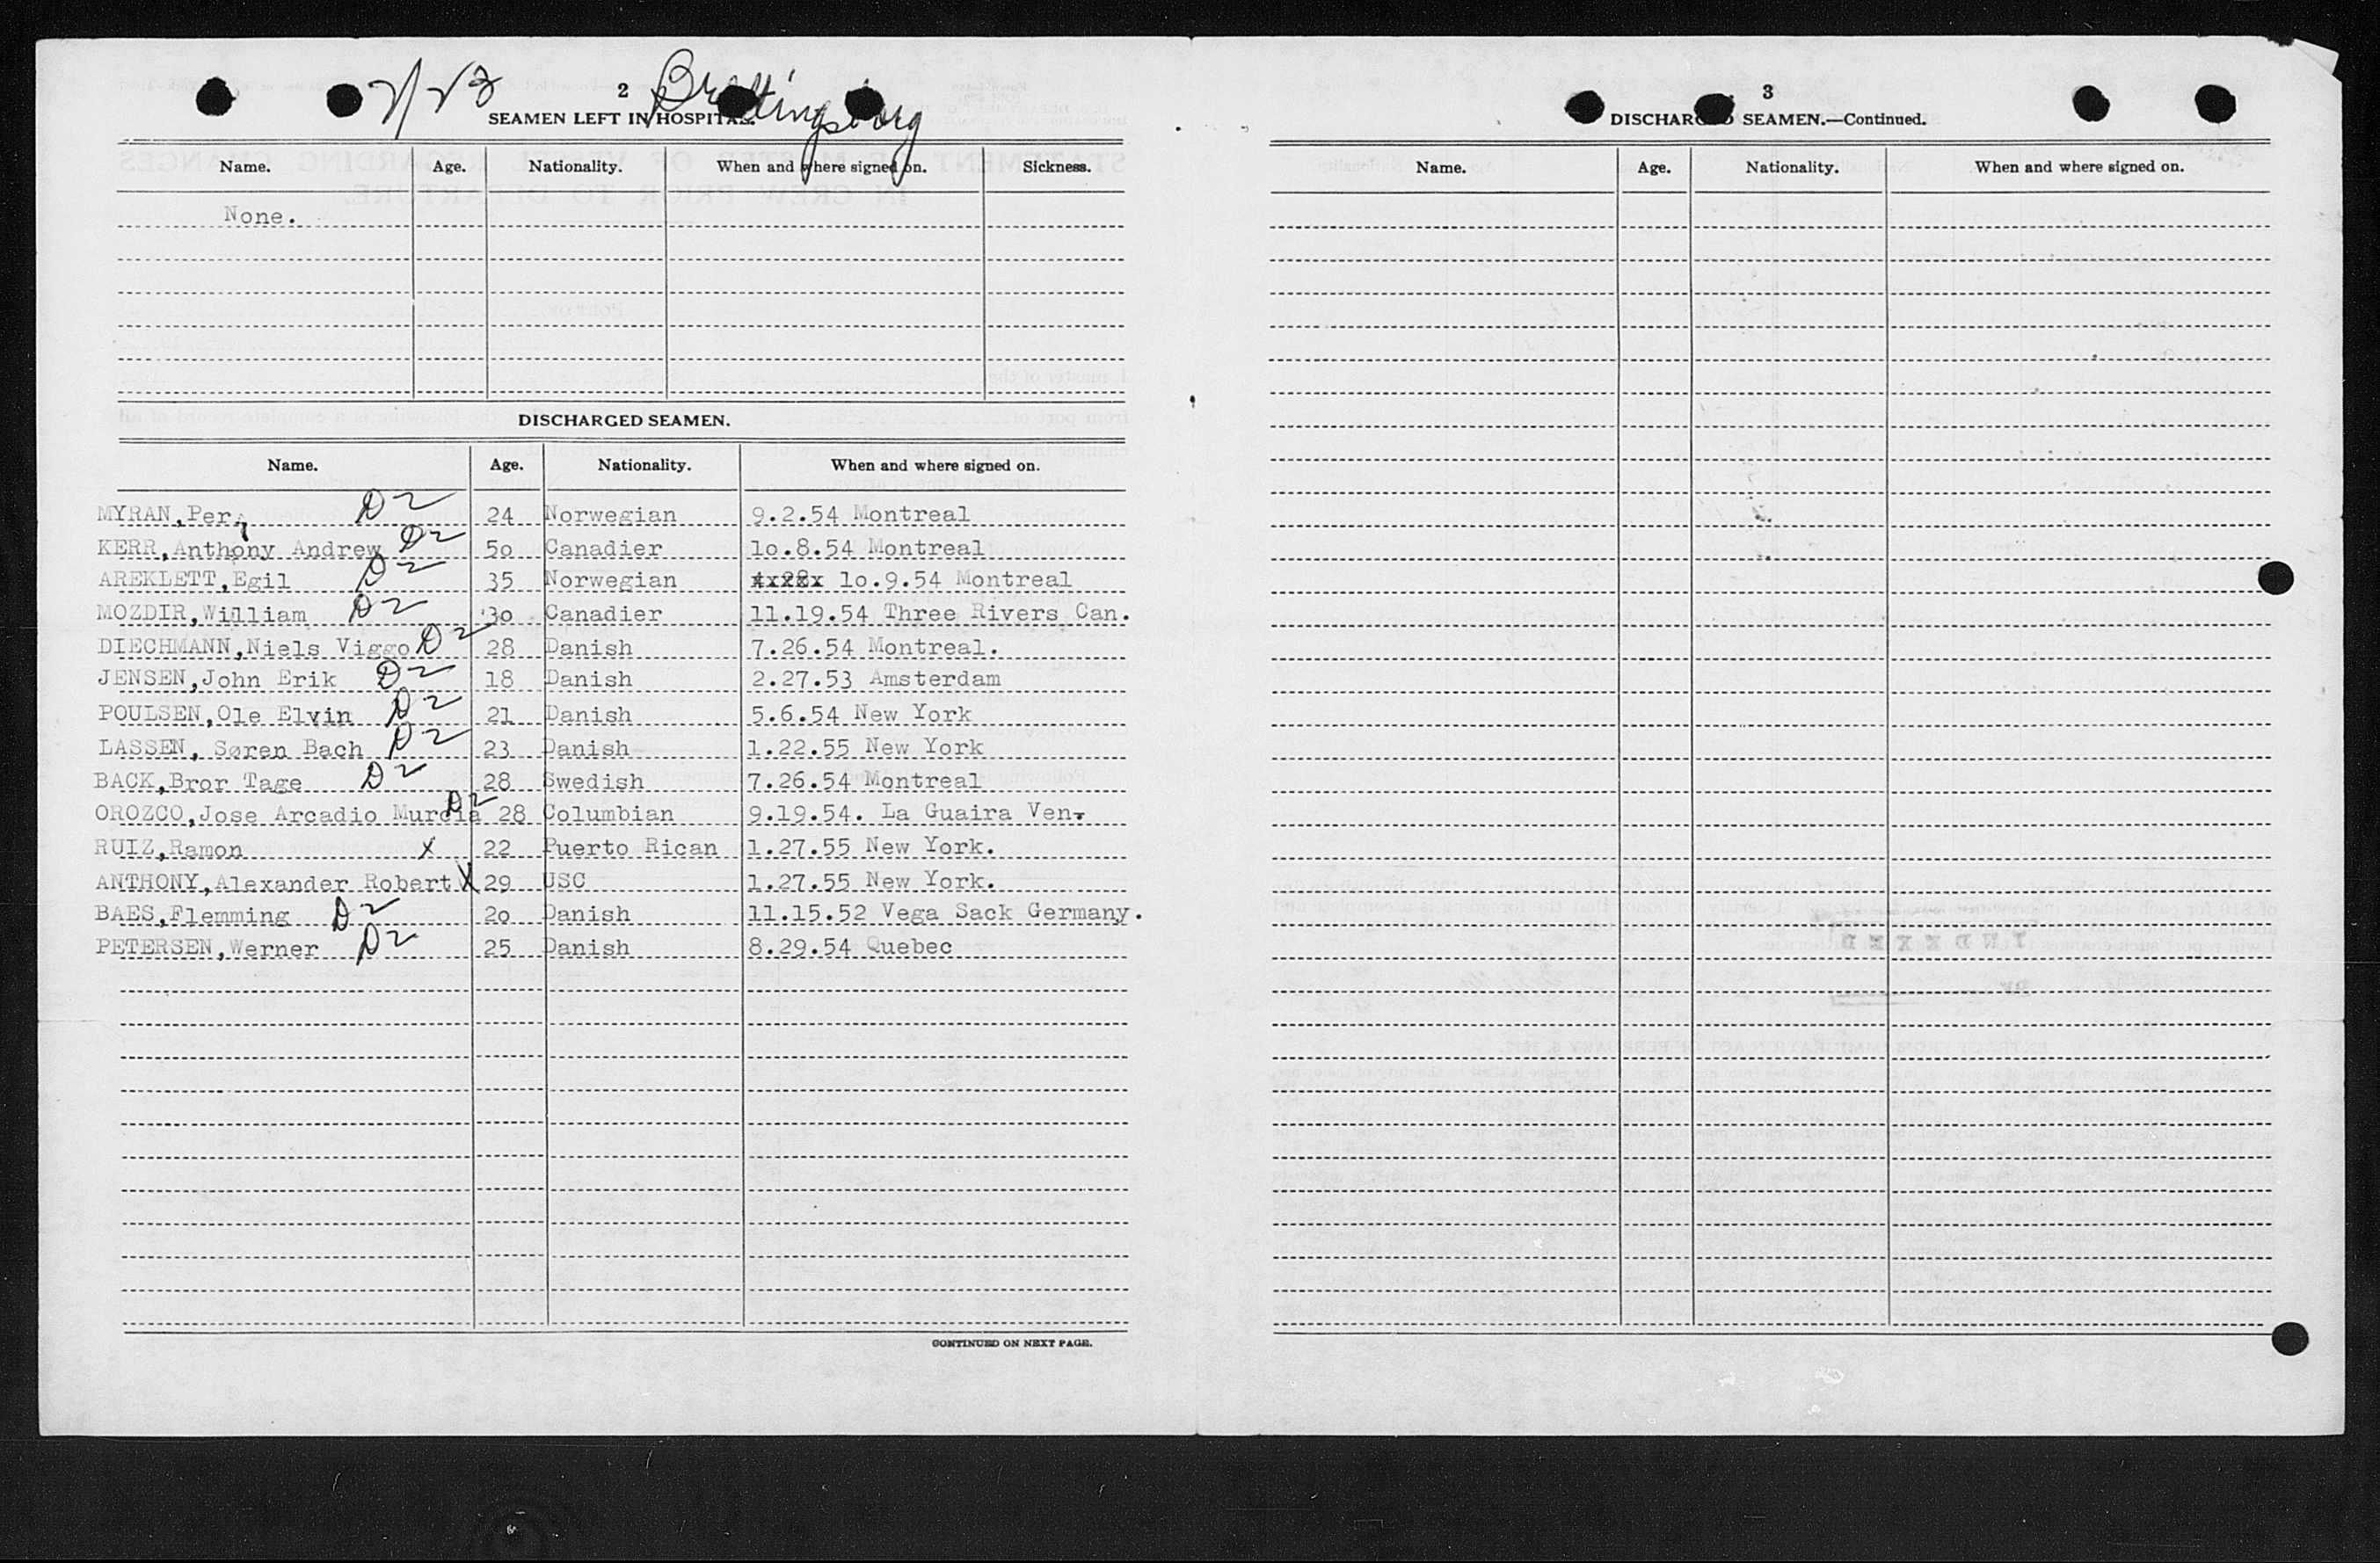 2
SEAMEN LEFT IN HOSPITAL.
Name. Age. Nationality. When and where signed on. Sickness.
None.
DISCHARGED SEAMEN.
Name. Age. Nationality. When and where signed on.
MYRAN,Per, D2 24 Norwegian 9.2.54 Montreal
KERR,Anthony Andrew D2 5o Canadier lo.8.54 Montreal
AREKLETT,Egil D2 35 Norwegian lo.9.54 Montreal
MOZDIR,William D2 3o Canadier 11.19.54 Three Rivers Can.
DIECHMANN,Niels Viggo D2 28 Danish 7.26.54 Montreal.
JENSEN,John Erik D2 18 Danish 2.27.53 Amsterdam
POULSEN,Ole Elvin D2 21 Danish 5.6.54 New York
LASSEN, Søren Bach D2 23 Danish 1.22.55 New York
BACK,Bror Tage D2 28 Swedish 7.26.54 Montreal
OROZCO,Jose Arcadio Murcia D2 28 Columbian 9.19.54. La Guaira Ven.
RUIZ,Ramon X 22 Puerto Rican 1.27.55 New York.
ANTHONY,Alexander Robert X 29 USC 1.27.55 New York.
BAES,Flemming D2 2o Danish 11.15.52 Vega Sack Germany.
PETERSEN,Werner D2 25 Danish 8.29.54 Quebec
CONTINUED ON NEXT PAGE.
3
DISCHARGED SEAMEN.—Continued.
Name. Age. Nationality. When and where signed on.